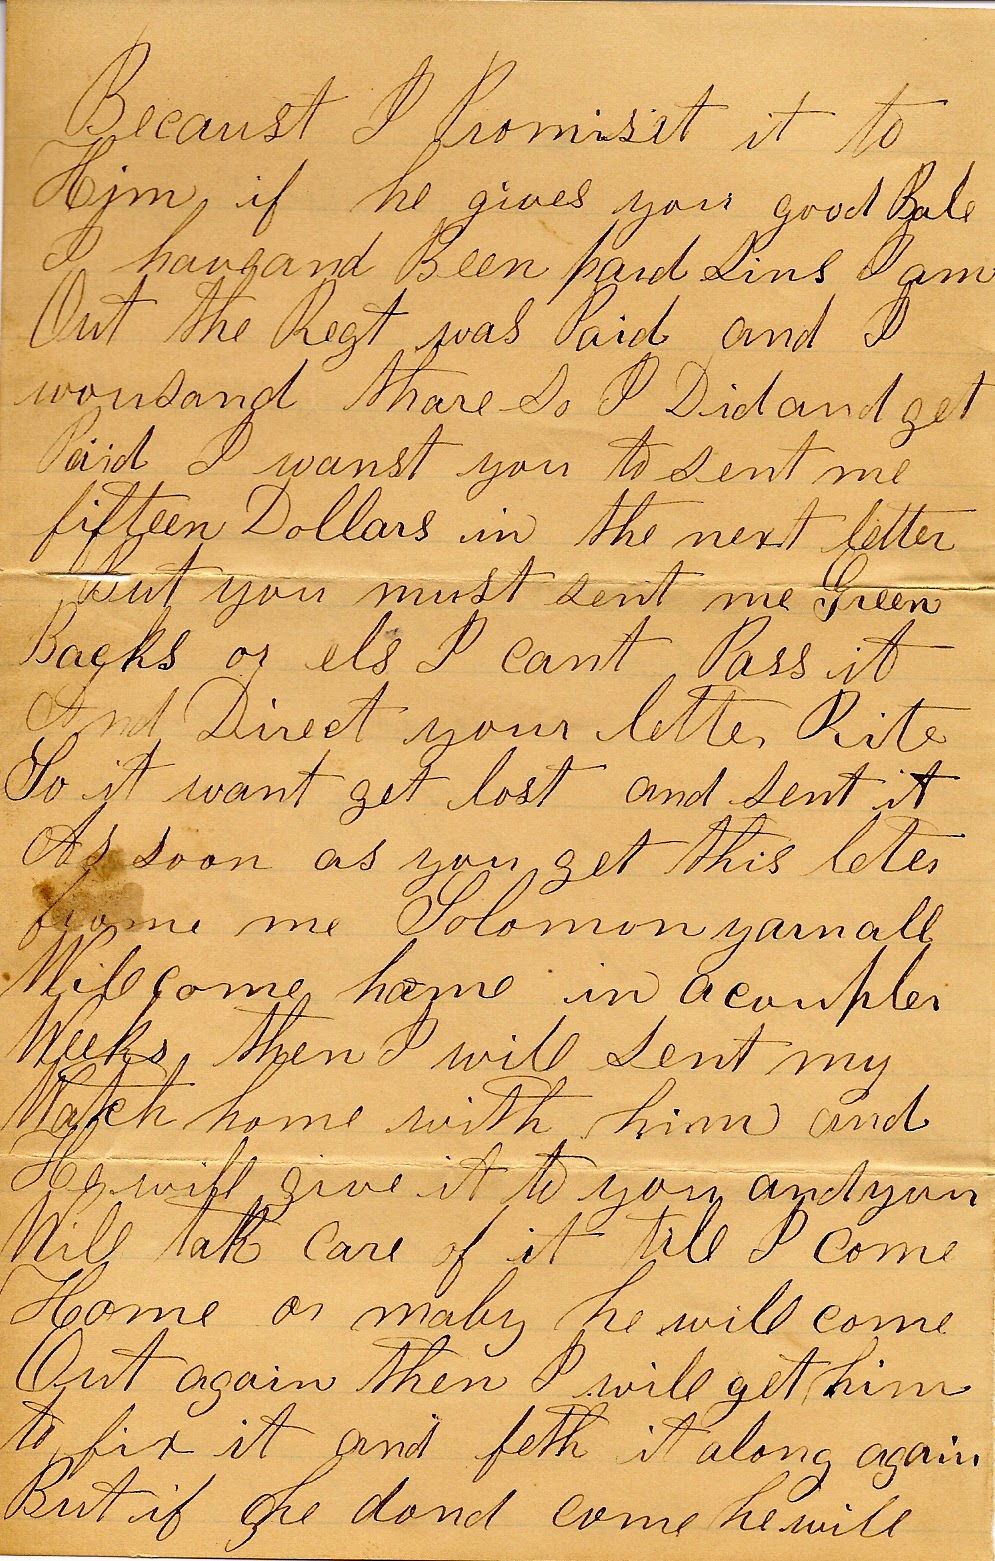 Becaust I Promisit it to
Him if he gives you good Bale
I havgand Been paid Sins I am
Out the Regt was Paid and I
wousand thare So I Did and get
Paid I wanst you to sent me
fifteen Dollars in the next letter
but you must sent me Green
Backs or els I cant Pass it
And Direct your letter Rite
So it want get lost and sent it
As soon as you get this leter
frome me Solomon yarnall
Will come home in a coupler
Weeks then I will sent my
Watch home with him and
He will give it to you and you
Will tak Care of it till I come
Home or maby he will come
Out again then I will get him
to fix it and feth it along again
But if he dond come he will